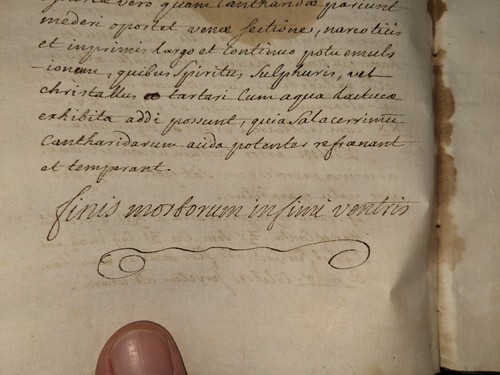 vero quam Cantharidæ pariunt
mederi oportet venæ sectione, narcoticis
et inprimis largo et continuo potu emuls
ionum, quibus Spiritus Sulphuris, vel
christallus tartari Cum aqua Lactucæ
exhibita addi possunt, quia Sal acerrimū
Cantharidarum acida potenter refrænant
et temperant.
finis morborum infimi ventris